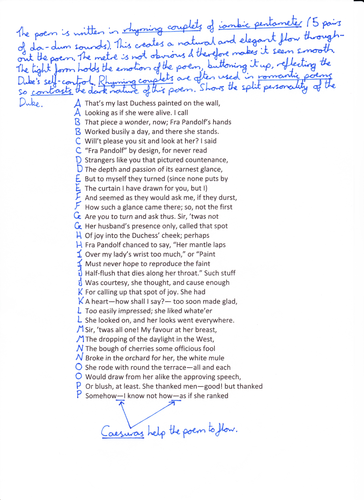 The poem is written in rhyming couplets of iambic pentameter (5 pairs
of da-dum sounds). This creates a natural and elegant flow through-
out the poem. The metre is not obvious & therefore makes it seem smooth
The tight form holds the emotion of the poem, buttoning it up, reflecting the
Duke's self-control. Rhyming couplets are often used in romantic poems
so contrasts the dark nature of this poem. Shows the split personality of the
Duke.
A That's my last Duchess painted on the wall,
A Looking as if she were alive. I call
B That piece a wonder, now; Fra Pandolf's hands
B Worked busily a day, and there she stands.
C Will't please you sit and look at her? I said
C "Fra Pandolf" by design, for never read
D Strangers like you that pictured countenance,
D The depth and passion of its earnest glance,
E But to myself they turned (since none puts by
E The curtain I have drawn for you, but I)
F And seemed as they would ask me, if they durst,
F How such a glance came there; so, not the first
G Are you to turn and ask thus. Sir, 'twas not
G Her husband's presence only, called that spot
H Of joy into the Duchess' cheek; perhaps
H Fra Pandolf chanced to say, "Her mantle laps
I Over my lady's wrist too much," or "Paint
I Must never hope to reproduce the faint
J Half-flush that dies along her throat." Such stuff
J Was courtesy, she thought, and cause enough
K For calling up that spot of joy. She had
K A heart—how shall I say?— too soon made glad,
L Too easily impressed; she liked whate'er
L She looked on, and her looks went everywhere.
M Sir, 'twas all one! My favour at her breast,
M The dropping of the daylight in the West,
N The bough of cherries some officious fool
N Broke in the orchard for her, the white mule
O She rode with round the terrace—all and each
O Would draw from her alike the approving speech,
P Or blush, at least. She thanked men—good! but thanked
P Somehow—I know not how—as if she ranked
Caesuras help the poem to flow.